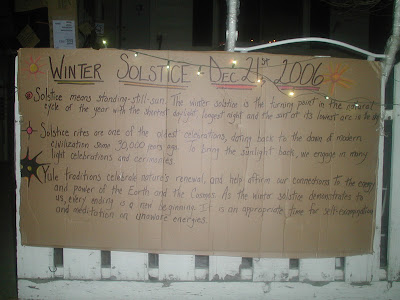 WINTER SOLSTICE • DEC 21ST 2006
Solstice means standing-still-sun. The winter solstice is the turning point in the natural
cycle of the year with the shortest daylight, longest night and the sun at its lowest arc in the sky
Solstice rites are one of the oldest celebrations, dating back to the dawn of modern
civilization some 30,000 years ago. To bring the sunlight back, we engage in many
light celebrations and ceremonies.
Yule traditions celebrate nature's renewal, and help affirm our connections to the energy
and power of the Earth and the Cosmos. As the winter solstice demonstrates to
us, every ending is a new beginning. It is an appropriate time for self-examination
and meditation on unaware energies.